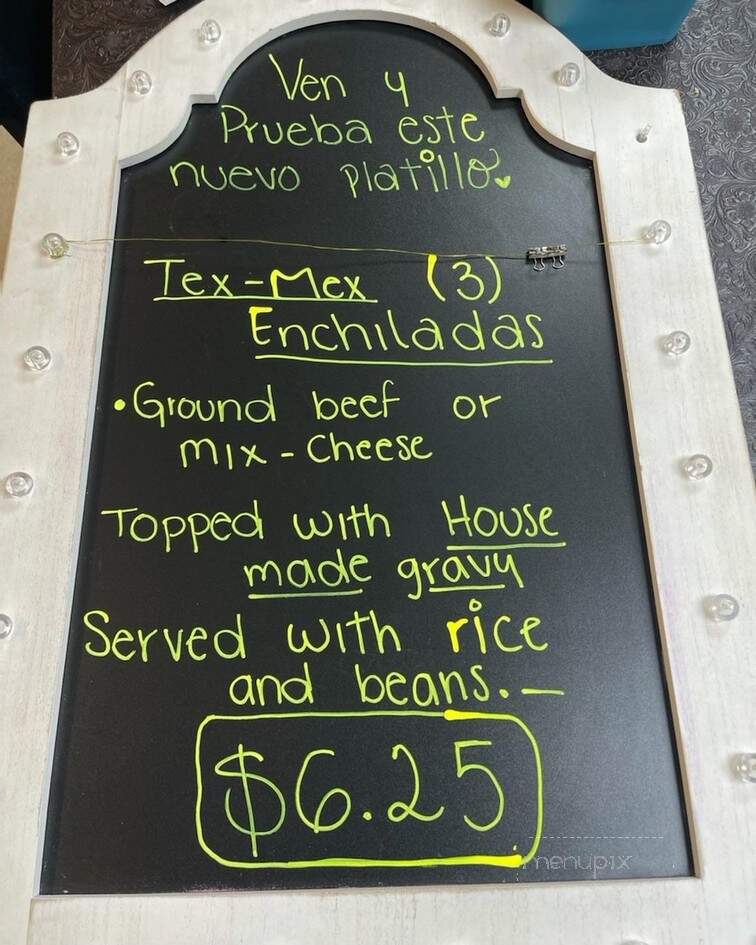 Ven y
Prueba este
nuevo platillo
Tex-Mex (3)
Enchiladas
• Ground beef or
mix-cheese
Topped with House
made gravy
Served with rice
and beans.—
$6.25
menupix